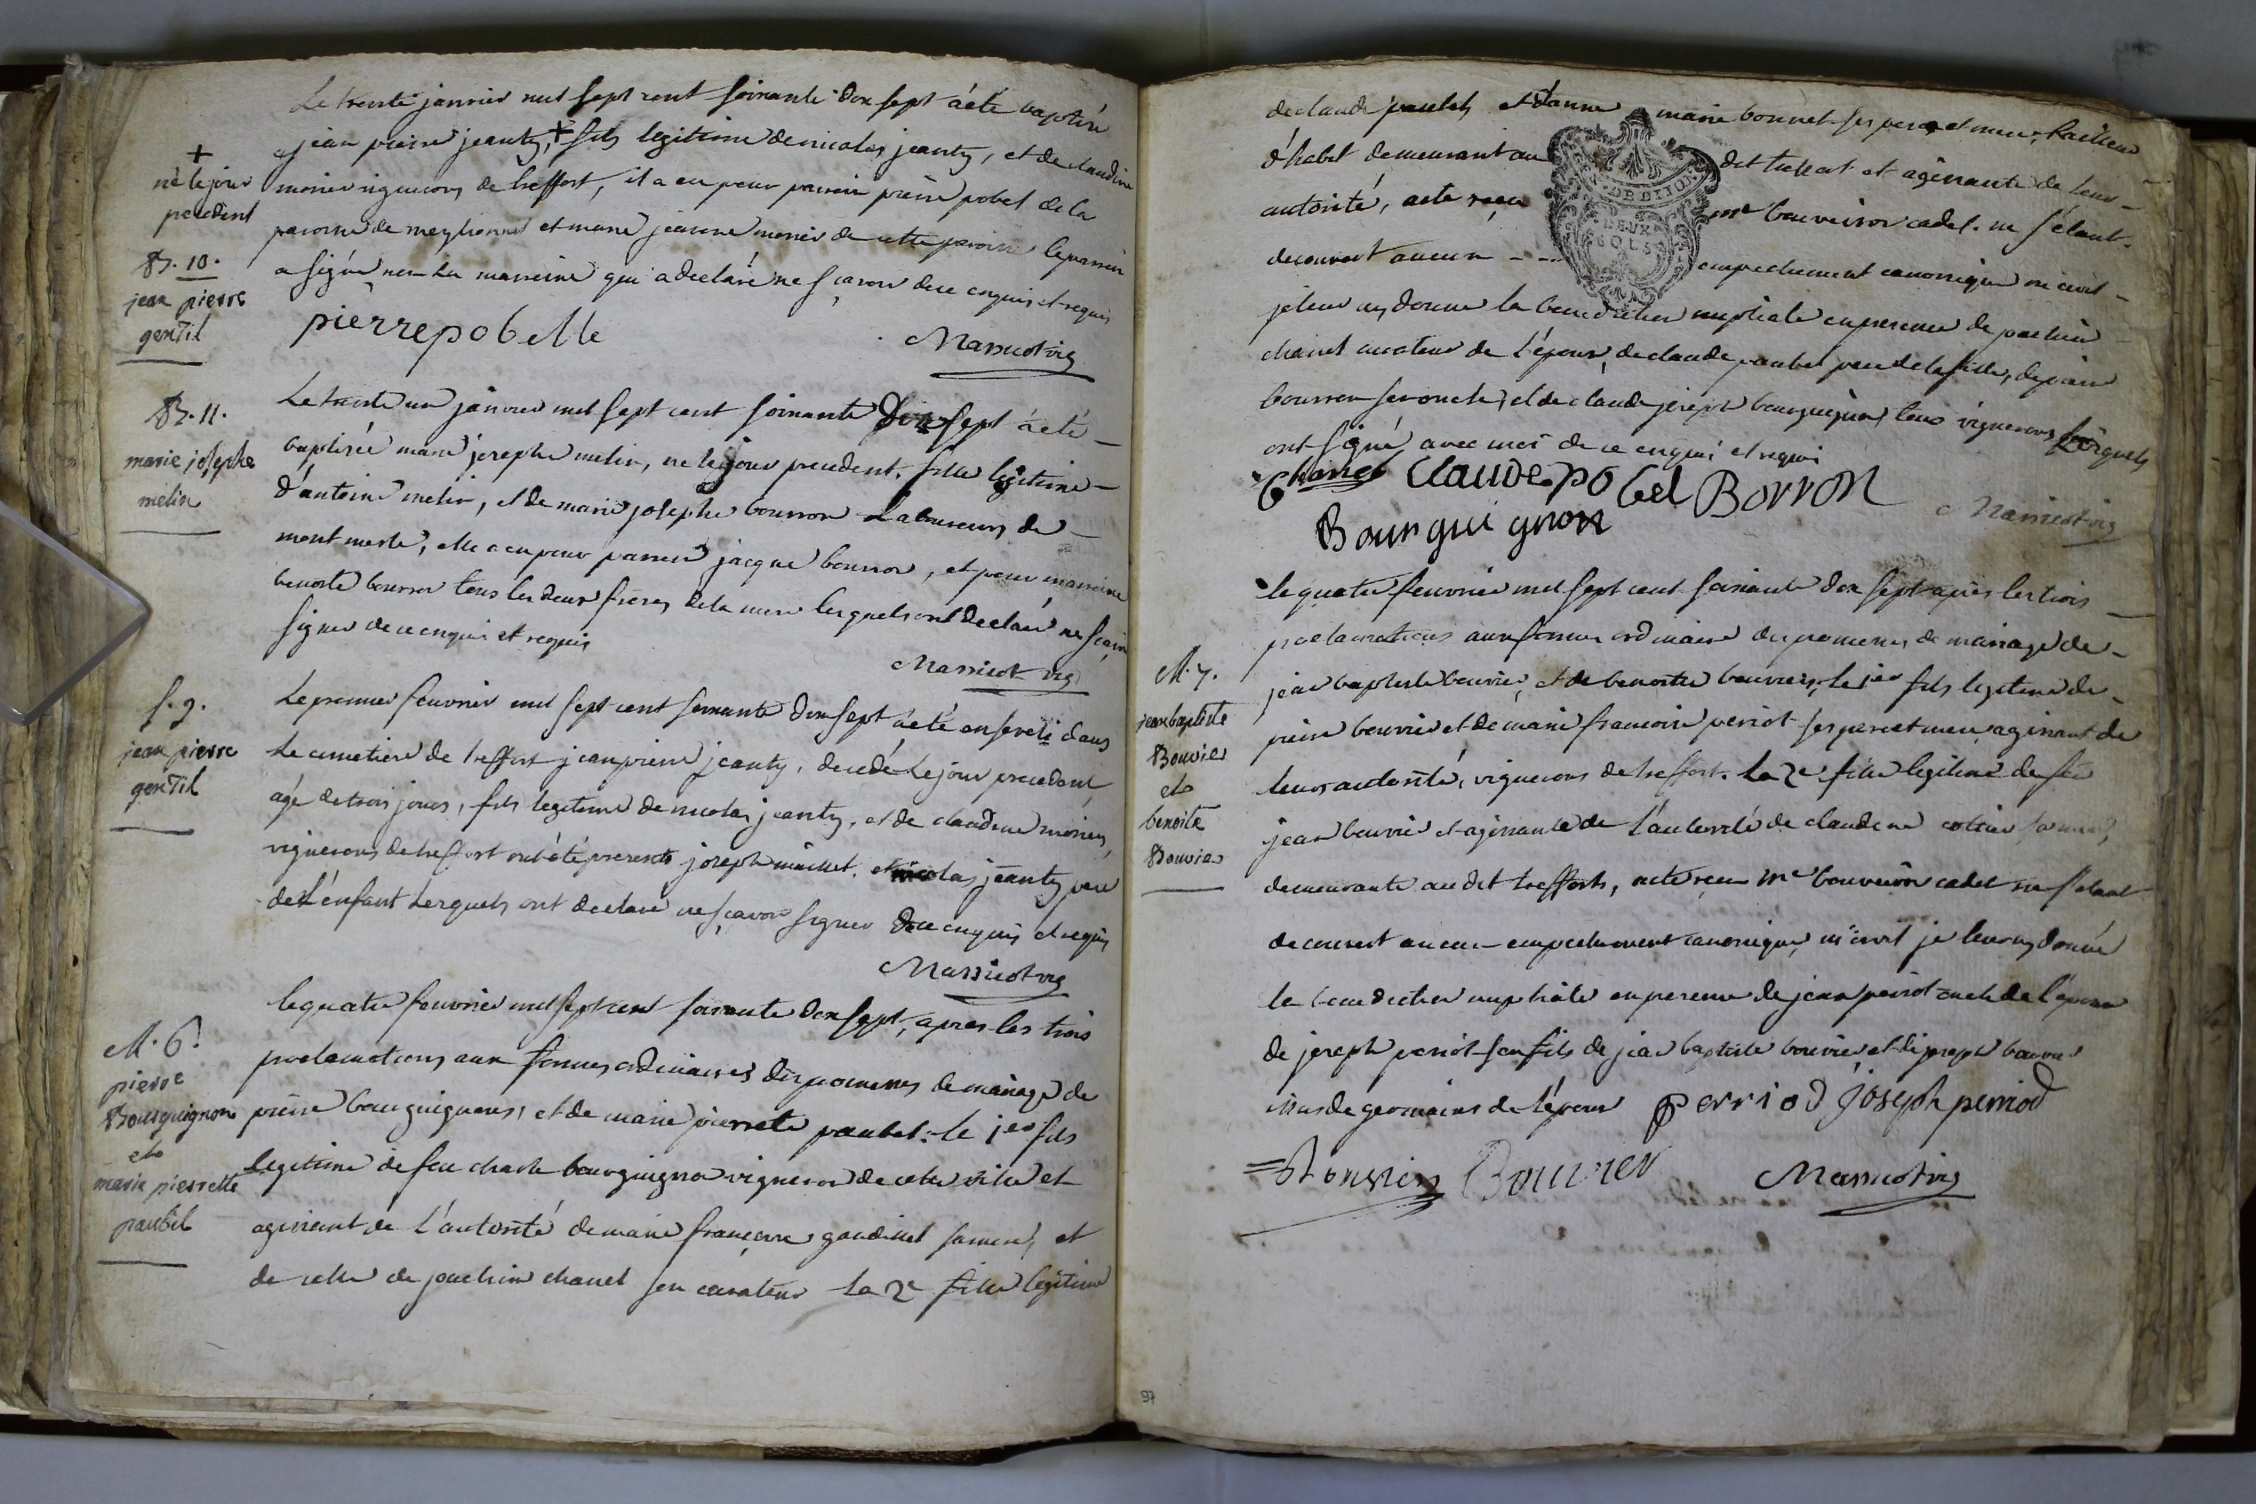 Le trente janvier mil sept cent soixante dix sept a été baptisé
jean pierre jeanty, + fils legitime de nicolas jeanty, et de claudine
monier vignerons de treffort, il a eu pour parrein pierre pobel de la
paroisse de meyllonna et marie jeanne monier de cette paroisse le parrein
a signé non la marreine qui a declaré ne sçavoir de ce enquis et requis
pierre pobelle
Massicot vig
+
né le jour
precedent
B. 10.
jean pierre
gentil
Le trente un janvier mil sept cent soixante dix sept a été
baptisée marie josephe melin, ne le jour precedent, fille legitime
d'antoine melin, et de marie josephe bourron Laboureurs de
mont merle, elle a eu pour parrein jacque bourron, et pour marreine
benoite bourron tous les deux freres de la mere lesquels ont declaré ne sçavoir
signer de ce enquis et requis
Massicot vig
B. 11.
marie josephe
melin
Le premier feuvrier mil sept cent soixante dix sept a été enseveli dans
Le cimetiere de treffort jean pierre jeanty, decedé Le jour precedent
agé de trois jours, fils legitime de nicolas jeanty, et de claudine monier,
vignerons de treffort ont été presents joseph maillet, et nicolas jeanty pere
de L'enfant Lesquels ont declaré ne sçavoir signer de ce enquis et requis
Massicot vig
s. 9.
jean pierre
gentil
le quatre feuvrier mil sept cent soixante dix sept, apres les trois
proclamations aux formes ordinaires des promesses de mariage de
pierre bourguignon, et de marie pierrette paubel: le 1er fils
legitime de feu charle bourguignon vigneron de cette ville et
agissant de l'autorité de marie françoise gaudinet sa mere, et
de celle de joachim chanel son curateur La 2e fille legitime
M. 6.
pierre
Bourguignon
et
marie pierrette
paubel
de claude paubel et d'anne marie bonnet ses pere et mere,
d'habit demeurant au dit treffort et agissante de leur
autorité, acte reçu me bouveiron cadet. ne s'étant
decouvert aucun - - - empechement canonique ni civil
je leur ay donné la benediction nuptiale en presence de joachim
chanel curateur de l'epoux, de claude paubel pere de la fille, de pierre
bourron son oncle, et de claude joseph bourguignon tous vignerons lesquels
ont signé avec moi de ce enquis et requis
Chanel Claude pobel Borron
Bourguignon
Massicot vig
le quatre feuvrier mil sept cent soixante dix sept apres les trois
proclamations aux formes ordinaires des promesses de mariage de
jean baptiste bouvier, et de benoite bouvier, le 1er fils legitime de
pierre bouvier et de marie françoise periot ses pere et mere agissant de
leur autorité, vignerons de treffort. La 2e fille legitime de feu
jean bouvier et agissante de l'autorité de claudine cottier sa mere,
demeurante au dit treffort, acte reçu me bouveiron cadet ne s'étant
decouvert aucun empechement canonique, ni civil je leur ay donné
la benediction nuptiale en presence de jean periot oncle de l'epoux
de joseph periot son fils de jean baptiste bouvier et de joseph bouvier
issus de germains de l'epoux perriod joseph perriod
Bouvier Bouvier
Massicot vig
M. 7.
jean baptiste
Bouvier
et
benoite
Bouvier
G. DE DIJON
DEUX
SOLS
97